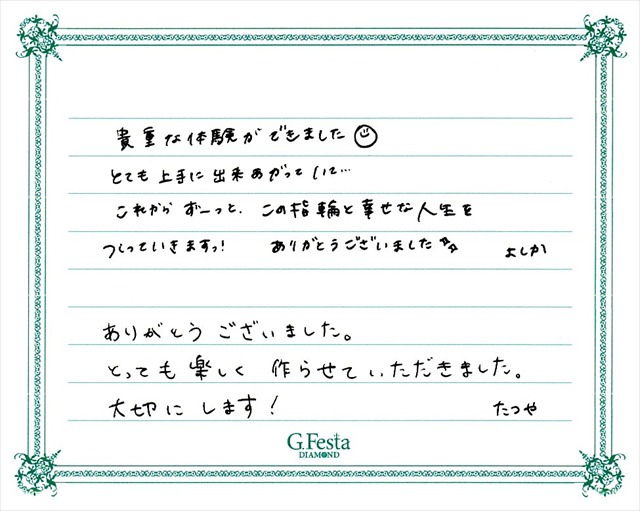 貴重な体験ができました☺
とても上手に出来あがっていて…
これから ずーっと、この指輪と幸せな人生を
つくっていきますっ! ありがとうございました
よしか
ありがとう ございました。
とっても 楽しく 作らせていただきました。
大切に します!
たつや
G.Festa
DIAMOND